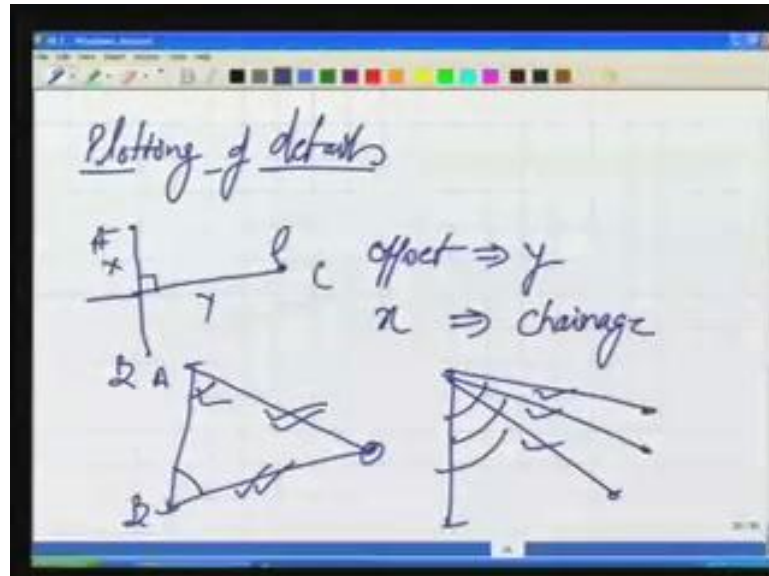 Plotting of details
A
x
offset ⇒ y
C
y
x ⇒ chainage
B A
B